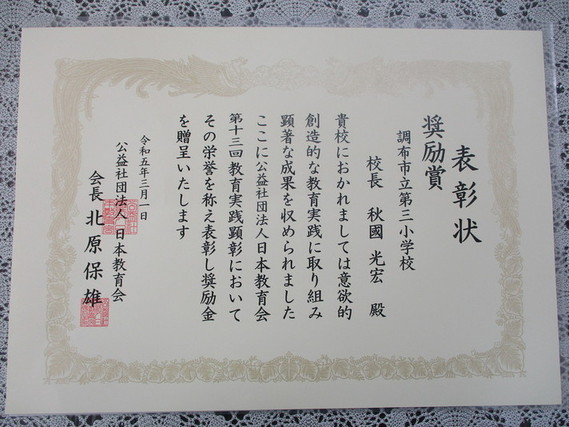 表彰状
奨励賞
調布市立第三小学校
校長 秋國 光宏 殿
貴校におかれましては意欲的
創造的な教育実践に取り組み
顕著な成果を収められました
ここに公益社団法人日本教育会
第十三回教育実践顕彰において
その栄誉を称え表彰し奨励金
を贈呈いたします
令和五年三月一日
公益社団法人 日本教育会
会長 北原保雄